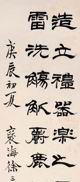 造立禮器樂之
雷洗觴觚爵鹿
庚辰初夏
海徐